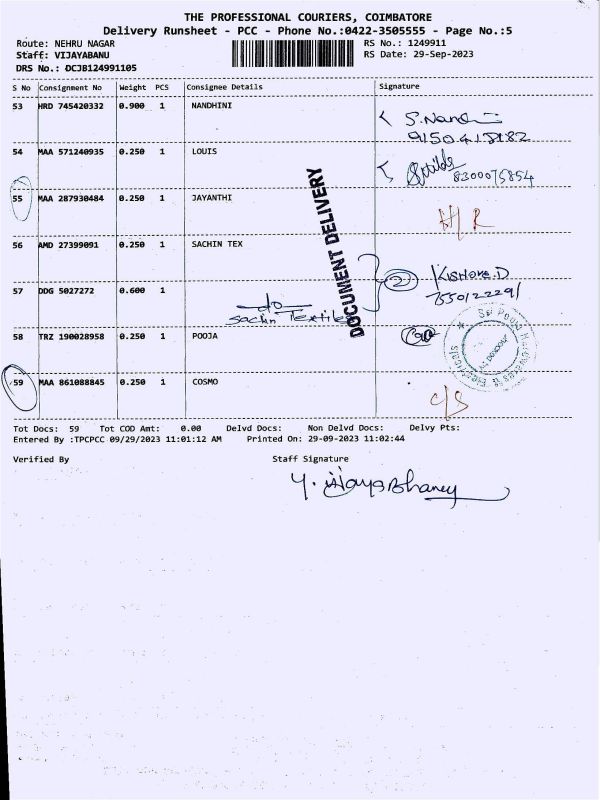 THE PROFESSIONAL COURIERS, COIMBATORE
Delivery Runsheet - PCC - Phone No.:0422-3505555 - Page No.:5
Route: NEHRU NAGAR
RS No.: 1249911
Staff: VIJAYABANU
RS Date: 29-Sep-2023
DRS No.: DCJB124991105
S No Consignment No Weight PCS Consignee Details Signature
53 HRD 745420332 0.900 1 NANDHINI
S.Nandhi
9150418182
54 MAA 571240935 0.250 1 LOUIS
8300075854
55 MAA 287930484 0.250 1 JAYANTHI
H/R
56 AMD 27399091 0.250 1 SACHIN TEX
DOCUMENT DELIVERY
2 Kishore.D
7550122291
57 DDG 5027272 0.600 1
do
Sachin Textile
58 TRZ 190028958 0.250 1 POOJA
Sri Pooja Hardwares & Electricals
59 MAA 861088845 0.250 1 COSMO
C/S
Tot Docs: 59 Tot COD Amt: 0.00 Delvd Docs: Non Delvd Docs: Delvy Pts:
Entered By :TPCPCC 09/29/2023 11:01:12 AM Printed On: 29-09-2023 11:02:44
Verified By Staff Signature